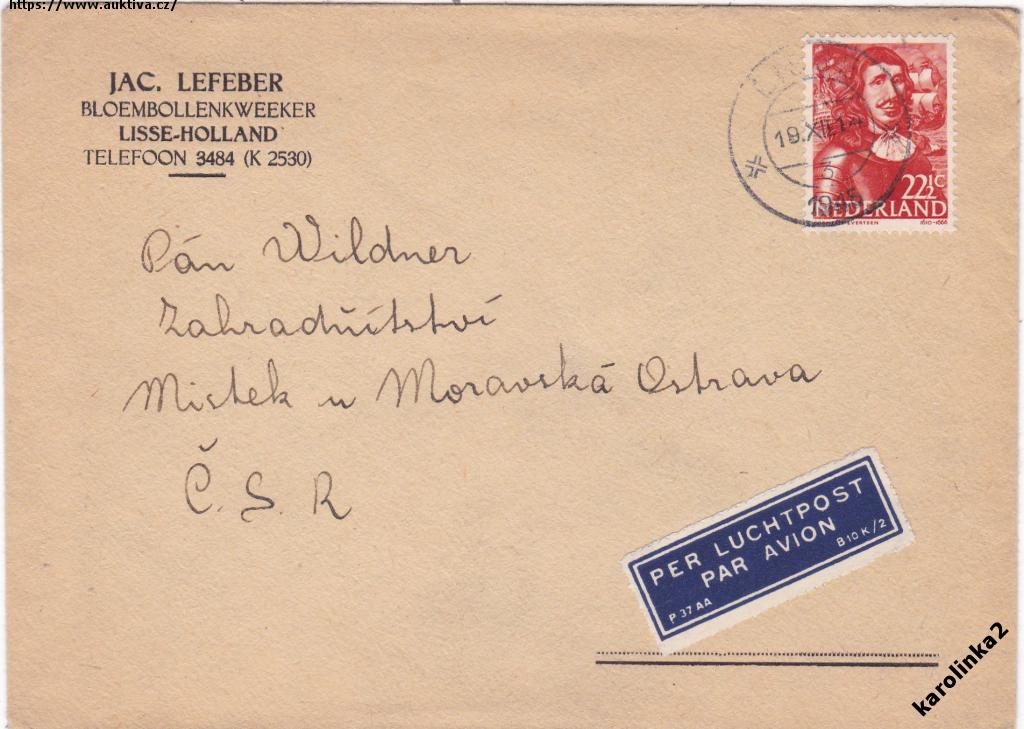 https://www.auktiva.cz/
JAC. LEFEBER
BLOEMBOLLENKWEEKER
LISSE-HOLLAND
TELEFOON 3484 (K 2530)
19.XII.14
1945
22½C
NEDERLAND
EVERTSEN 1610-1666
Pán Wildner
Zahradňítství
Mistek u Moravská Ostrava
Č. S. R
PER LUCHTPOST
PAR AVION
P 37 AA B 10 K/2
karolinka2